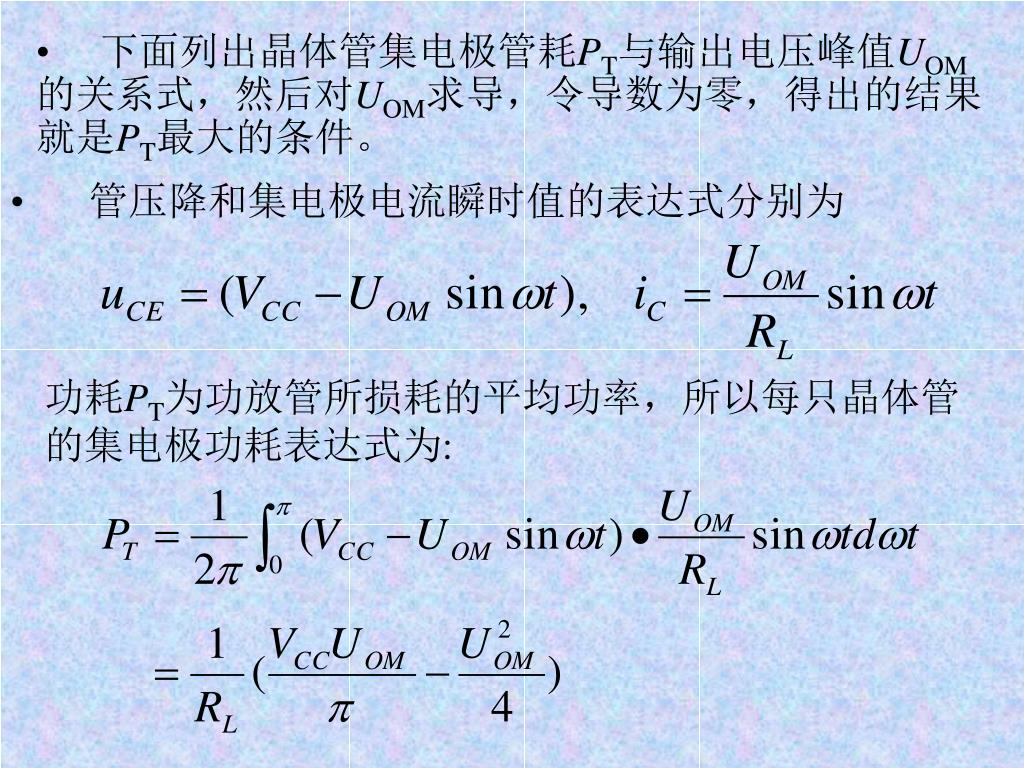 • 下面列出晶体管集电极管耗P_T与输出电压峰值U_OM
的关系式，然后对U_OM求导，令导数为零，得出的结果
就是P_T最大的条件。
• 管压降和集电极电流瞬时值的表达式分别为
u_{CE} = (V_{CC} − U_{OM} sin ωt), i_C = \frac{U_{OM}}{R_L} sin ωt
功耗P_T为功放管所损耗的平均功率，所以每只晶体管
的集电极功耗表达式为:
P_T = \frac{1}{2π} ∫_0^π (V_{CC} − U_{OM} sin ωt) • \frac{U_{OM}}{R_L} sin ωtdωt
= \frac{1}{R_L} (\frac{V_{CC}U_{OM}}{π} − \frac{U_{OM}^2}{4})